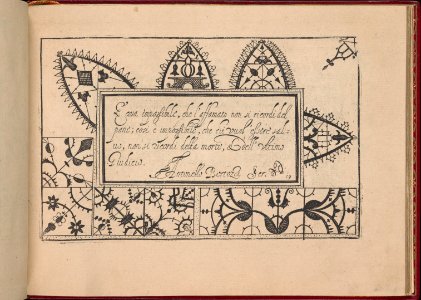 E cosa impossibile, che l'affamato non si ricordi del
pane; così è impossibile, che chi vuol essere sal-
uo, non si ricordi della morte, & dell' ultimo
Giudicio.
Scr.